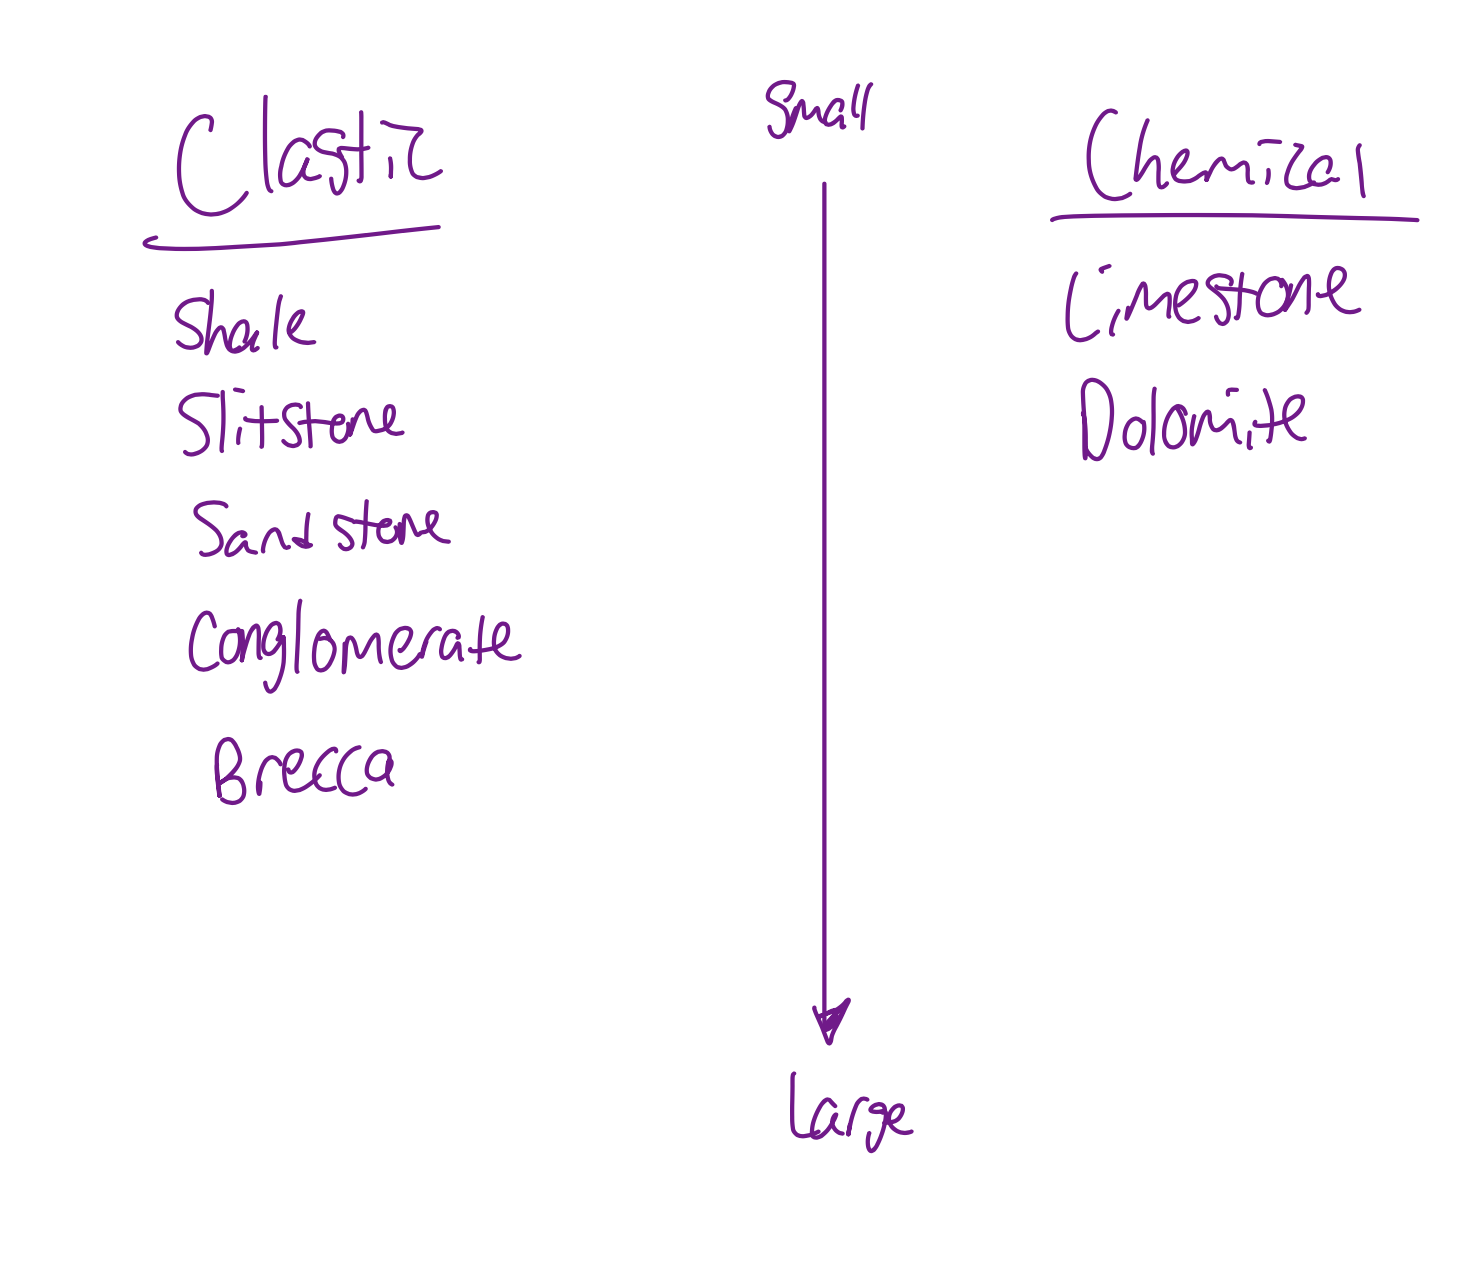 Clastic
Shale
Slitstone
Sandstone
Conglomerate
Brecca
Small
Large
Chemical
Limestone
Dolomite